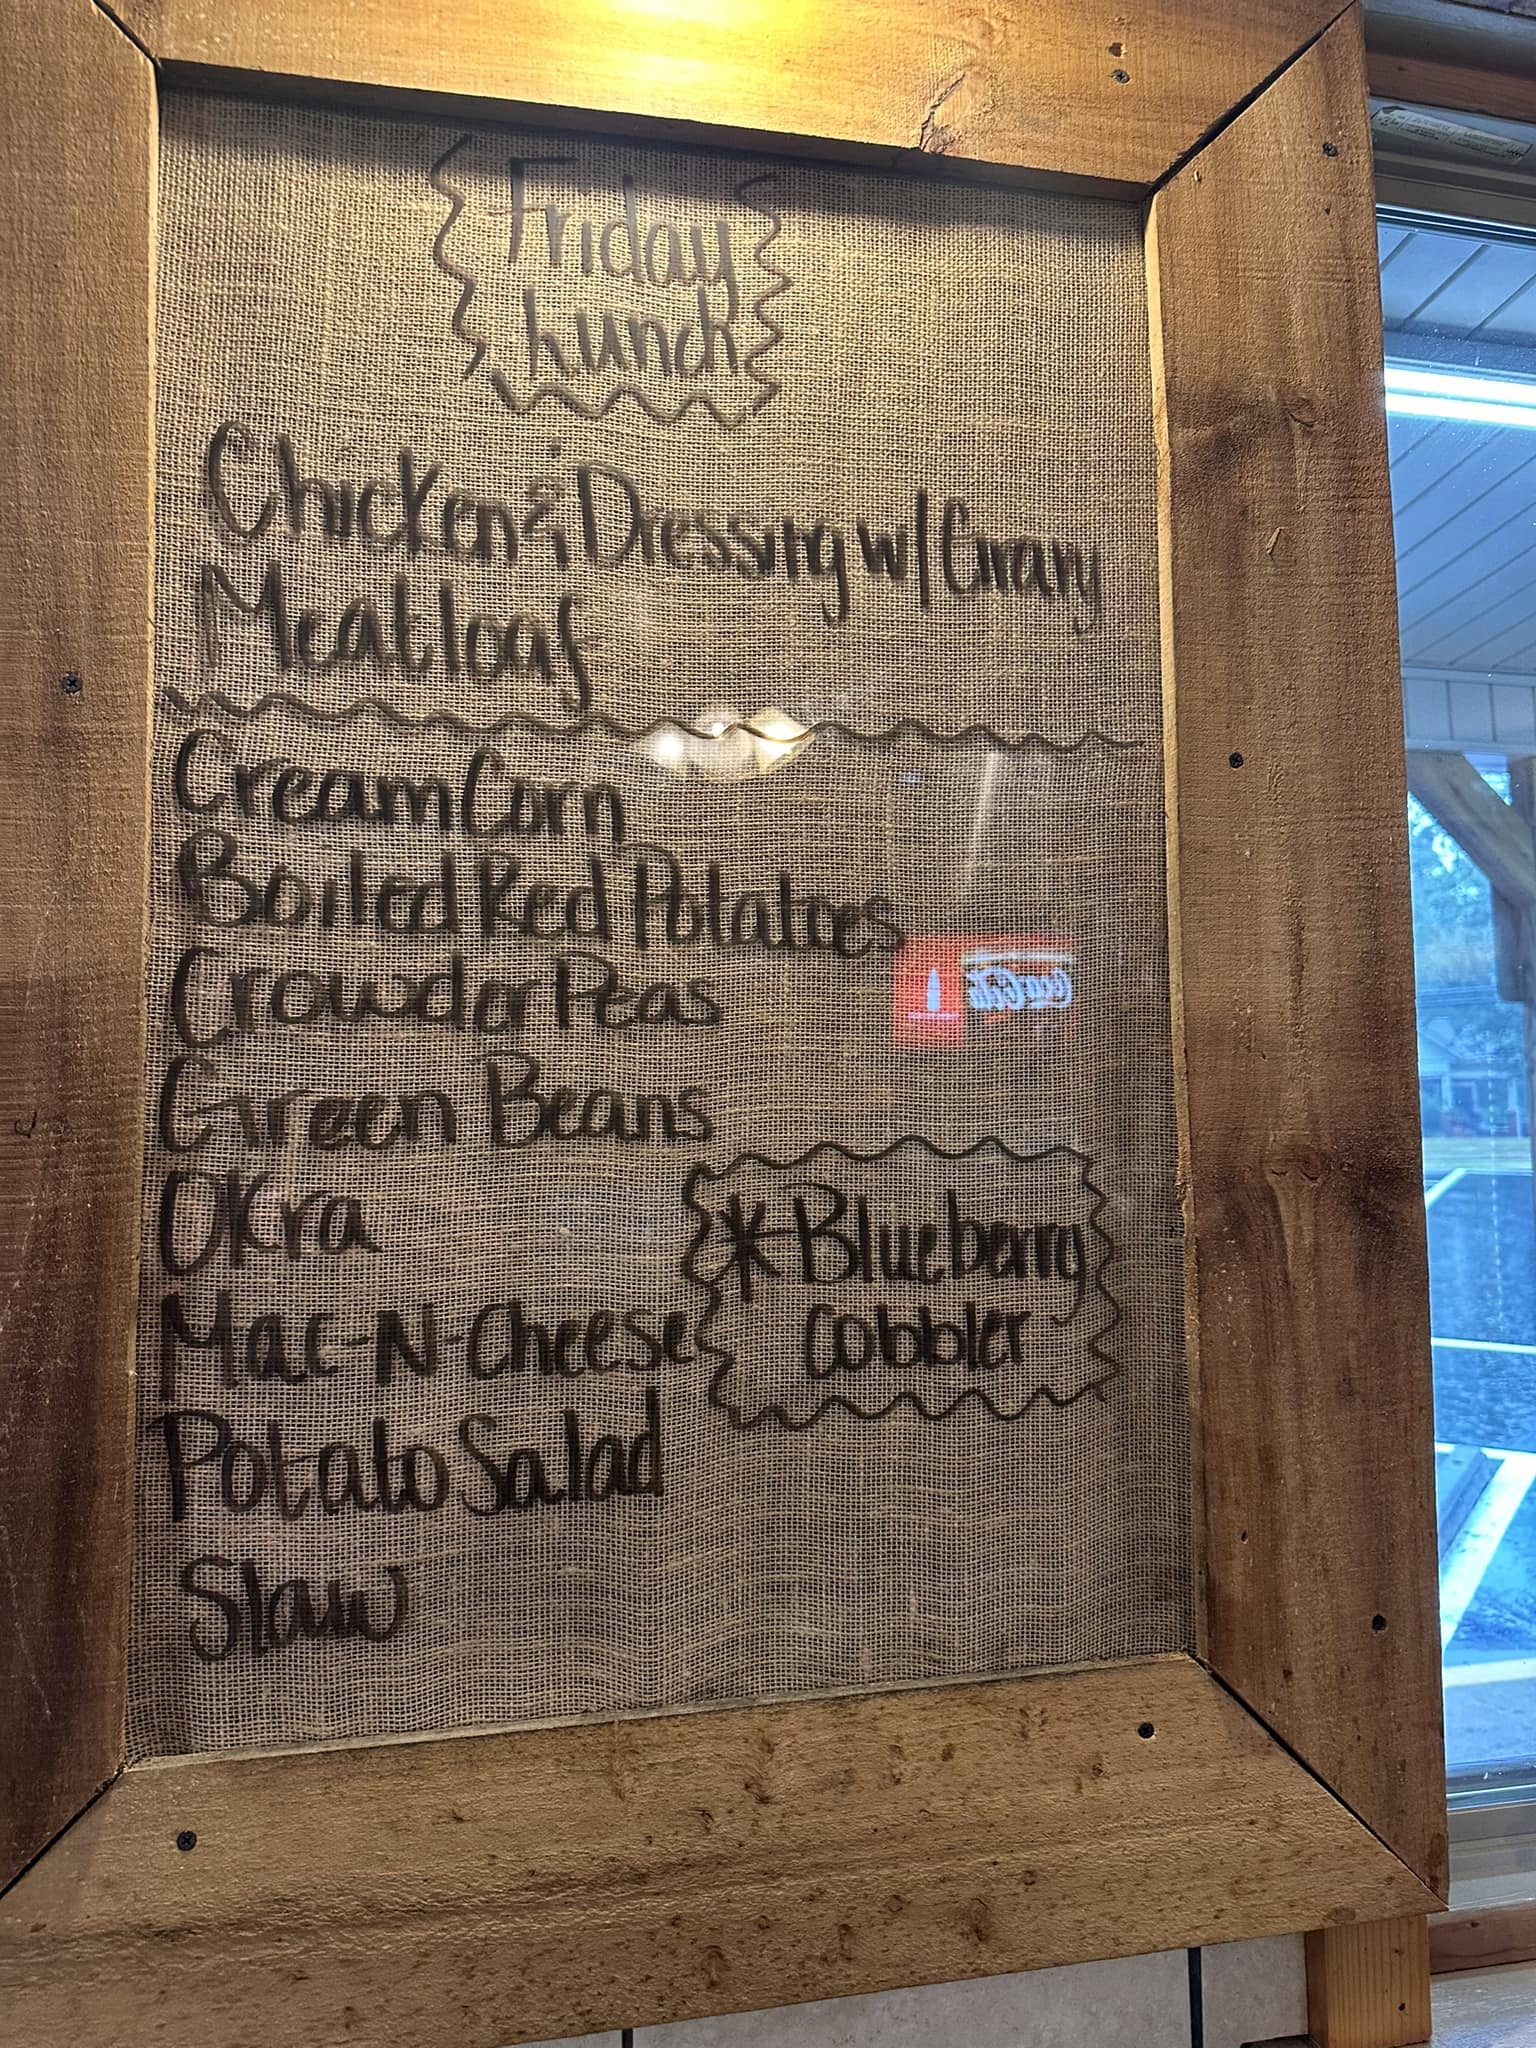 Friday
Lunch
Chicken & Dressing w/ Gravy
Meatloaf
Cream Corn
Boiled Red Potatoes
Crowder Peas
Coca-Cola
Green Beans
Okra
*Blueberry
Cobbler
Mac-N-Cheese
Potato Salad
Slaw